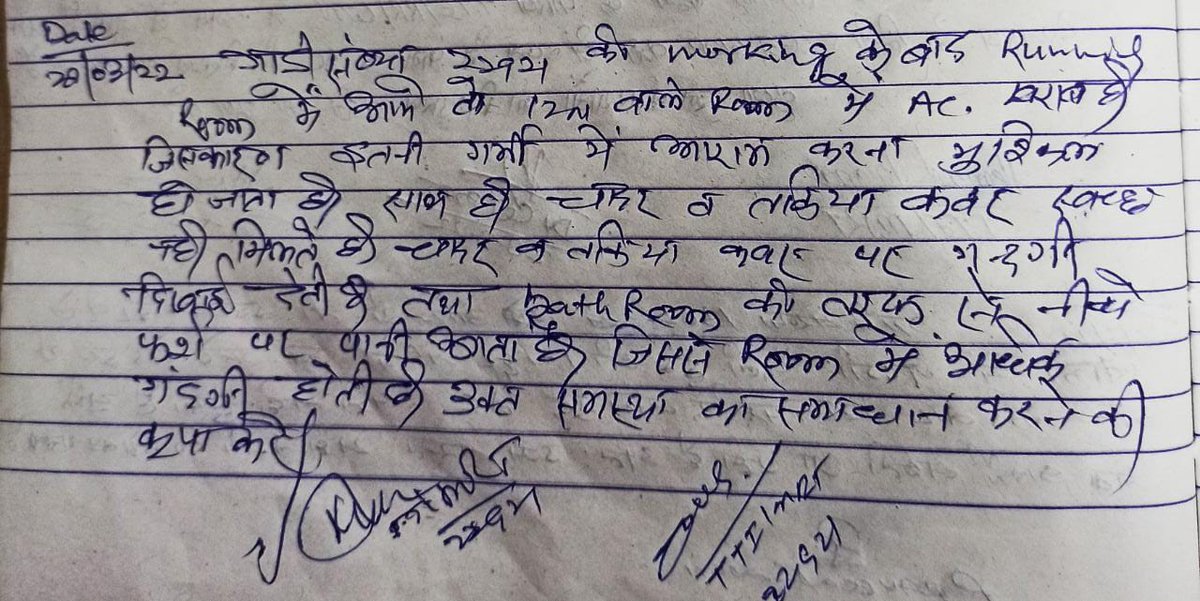 Date
20/03/22 गाडी संख्या को working के बाद Running
Room में आने के 12 वाले Room में AC. खराब है
जिसकारण इतनी गर्मी में आराम करना मुश्किल
हो जाता है साथ ही चादर व तकिया कवर स्वच्छ
नही मिलते है चादर व तकिया कवर पर गन्दगी
दिखाई देती है तथा bath Room की तरफ से नीचे
फर्श पर पानी आता है जिससे Room में
गंदगी होती है उक्त समस्या का समाधान करने की
कृपा करें